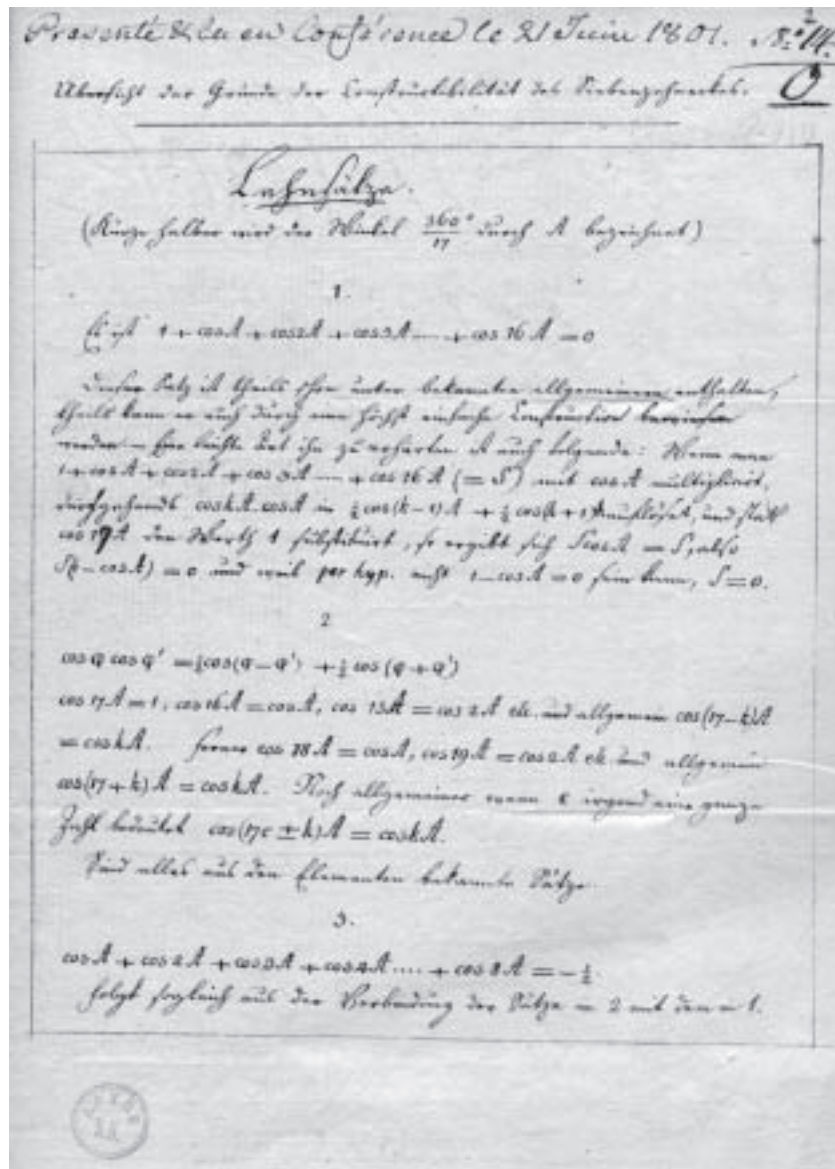 Presenté & lu en Conférence le 21 Juin 1801. N:º 14.
Übersicht der Gründe der Constructibilität des Siebenzehnecks. O
Lehnsätze.
(Kürze halber wird der Winkel 360°/17 durch A bezeichnet)
1.
Es ist 1 + cos A + cos 2A + cos 3A .... + cos 16 A = 0
Dieser Satz ist theils schon unter bekannten allgemeinern enthalten,
theils kann er auch durch eine höchst einfache Construction bewiesen
werden – Eine leichte Art ihn zu erhärten ist auch folgende: Wenn man
1 + cos A + cos 2A + cos 3A .... + cos 16 A (= S) mit cos A multiplicirt,
durchgehends cos kA. cos A in ½ cos (k – 1) A + ½ cos (k + 1) A auflöset, und statt
cos 17A den Werth 1 substituirt, so ergibt sich S cos A = S, also
S(1 – cos A) = 0 und weil per hyp. nicht 1 – cos A = 0 sein kann, S = 0.
2
cos φ cos φ' = ½ cos (φ – φ') + ½ cos (φ + φ')
cos 17 A = 1, cos 16 A = cos A, cos 15 A = cos 2 A etc. und allgemein cos (17 – k) A
= cos kA. ferner cos 18 A = cos A, cos 19 A = cos 2 A etc und allgemein
cos (17 + k) A = cos kA. Noch allgemeiner wenn c irgend eine ganze
Zahl bedeutet cos (17c ± k) A = cos kA.
Sind alles aus den Elementen bekannte Sätze
3.
cos A + cos 2 A + cos 3 A + cos 4 A .... + cos 8 A = – ½.
folgt sogleich aus der Verbindung der Sätze in 2 mit dem in 1.